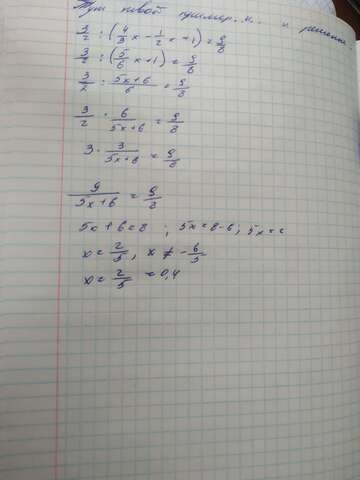 Тут новой пример. и.. и решение
3/2 : (4/3 x - 1/2 x + 1) = 9/8
3/2 : (5/6 x + 1) = 9/8
3/2 : 5x+6/6 = 9/8
3/2 · 6/5x+6 = 9/8
3 · 3/5x+6 = 9/8
9/5x+6 = 9/8
5x + 6 = 8 ; 5x = 8-6 ; 5x = 2
x = 2/5 , x ≠ - 6/5
x = 2/5 = 0,4